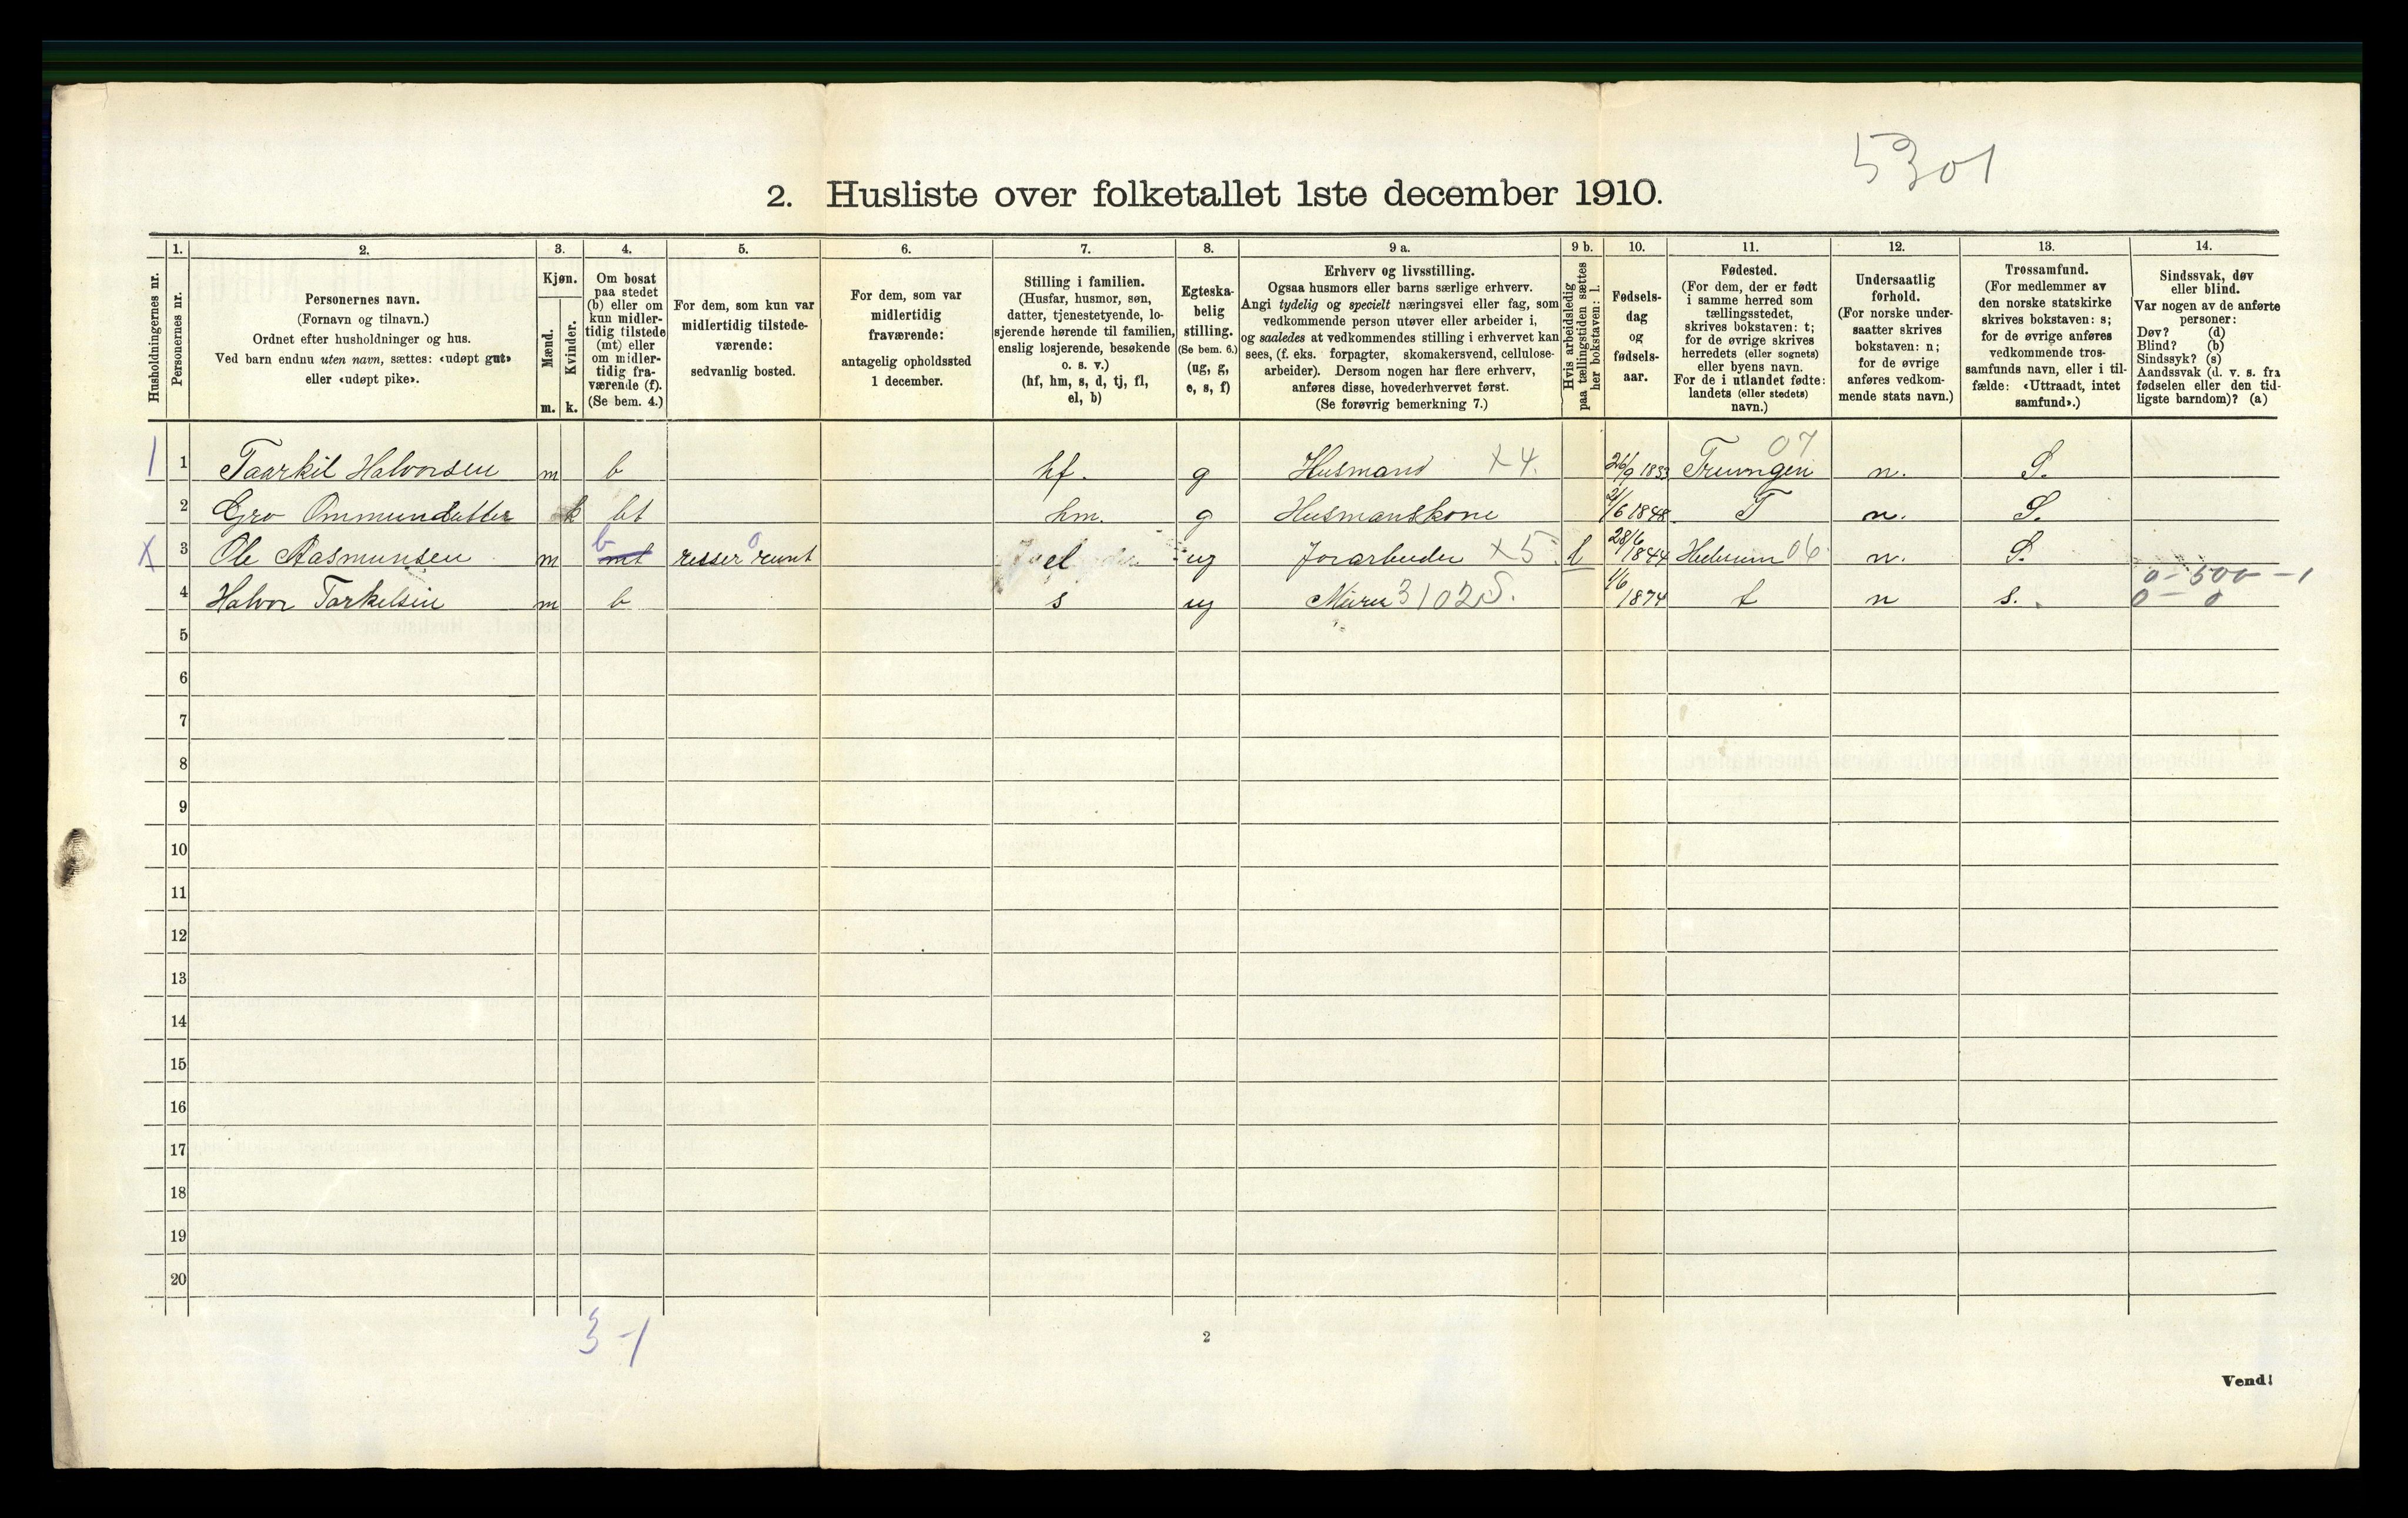 5301
2. Husliste over folketallet 1ste december 1910.
Husholdningernes nr.
1.
Personernes nr.
2.
Personernes navn.
(Fornavn og tilnavn.)
Ordnet efter husholdninger og hus.
Ved barn endnu uten navn, sættes: «udøpt gut»
eller «udøpt pike».
3.
Kjøn.
Mænd.
Kvinder.
m. k.
4.
Om bosat
paa stedet
(b) eller om
kun midler-
tidig tilstede
(mt) eller
om midler-
tidig fra-
værende (f).
(Se bem. 4.)
5.
For dem, som kun var
midlertidig tilstede-
værende:
sedvanlig bosted.
6.
For dem, som var
midlertidig
fraværende:
antagelig opholdssted
1 december.
7.
Stilling i familien.
(Husfar, husmor, søn,
datter, tjenestetyende, lo-
sjerende hørende til familien,
enslig losjerende, besøkende
o. s. v.)
(hf, hm, s, d, tj, fl,
el, b)
8.
Egteska-
belig
stilling.
(Se bem. 6.)
(ug, g,
e, s, f)
9 a.
Erhverv og livsstilling.
Ogsaa husmors eller barns særlige erhverv.
Angi tydelig og specielt næringsvei eller fag, som
vedkommende person utøver eller arbeider i,
og saaledes at vedkommendes stilling i erhvervet kan
sees, (f. eks. forpagter, skomakersvend, cellulose-
arbeider). Dersom nogen har flere erhverv,
anføres disse, hovederhvervet først.
(Se forøvrig bemerkning 7.)
9 b.
Hvis arbeidsledig
paa tællingstiden sættes
her bokstaven: l.
10.
Fødsels-
dag
og
fødsels-
aar.
11.
Fødested.
(For dem, der er født
i samme herred som
tællingsstedet,
skrives bokstaven: t;
for de øvrige skrives
herredets (eller sognets)
eller byens navn.
For de i utlandet fødte:
landets (eller stedets)
navn.)
12.
Undersaatlig
forhold.
(For norske under-
saatter skrives
bokstaven: n;
for de øvrige
anføres vedkom-
mende stats navn.)
13.
Trossamfund.
(For medlemmer av
den norske statskirke
skrives bokstaven: s;
for de øvrige anføres
vedkommende tros-
samfunds navn, eller i til-
fælde: «Uttraadt, intet
samfund».)
14.
Sindssvak, døv
eller blind.
Var nogen av de anførte
personer:
Døv? (d)
Blind? (b)
Sindssyk? (s)
Aandssvak (d. v. s. fra
fødselen eller den tid-
ligste barndom)? (a)
1 1 Taarkil Halvorsen m b hf. g Husmand x 4. 26/9 1853 07 n. S.
2 Gro Ommundsatter k bt hm. g Husmanskone 1848 T n. S.
x 3 Ole Aasmunsen m b mt resser runt el ug Jorarbeider x 5 l 28/6 1844 06 n. S.
0 - 500 - 1
4 Halvor Tarkelsen m b s ug 3102 S. 1/6 1874 t n s. 0 - 0
5
6
7
8
9
10
11
12
13
14
15
16
17
18
19
20
3-1
2
Vend!